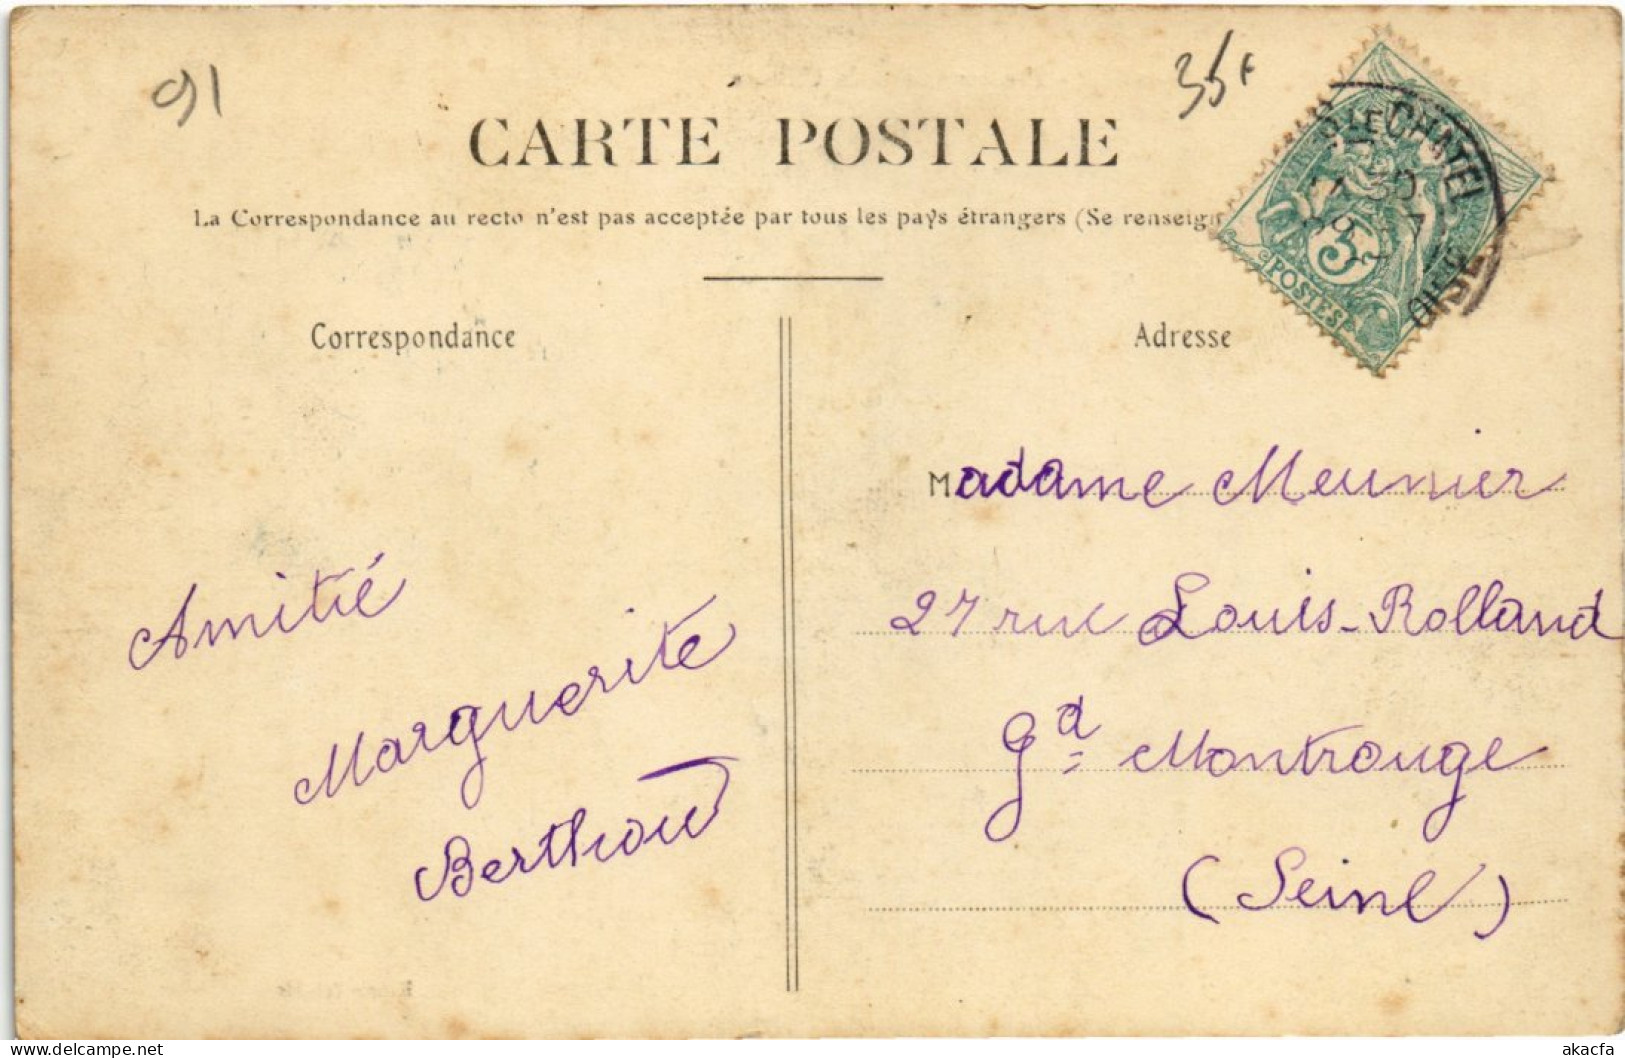 91
35F
CARTE POSTALE
La Correspondance au recto n'est pas acceptée par tous les pays étrangers (Se renseign
CHATEL
OISE
5
POSTES
Correspondance
Adresse
Amitié
Marguerite
Berthion
Madame Meunier
27 rue Louis-Rolland
Gd Montrouge
(Seine)
delcampe.net
akacfa